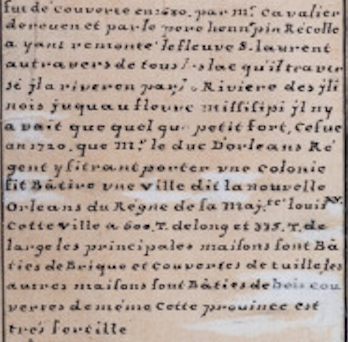 fut de couverte en 1680. par mr. Cavalier
de rouen et par le pere hennpin Récolle
a yant remonté le fleuve S. laurent
au travers de tous l.slac qu'il traver
sé jl a riveren par l. Riviere des jli
nois juqua u fleuve missisipi jl ny
a vait que quel qu. petit fort, Ce fue
an 1720. que Mr. le duc D'orleans Ré
gent y fit trant porter vne colonie
fit Bâtire vne ville dit la nouvelle
Orleans du Régne de la Maj.te. louis XV.
Cette ville a 600. T. de long et 335. T. de
large les principales maisons sont Bâ
ties de Brique et couvertes de tuille les
autres maisons sont Bâties de bois cou
vertes de méme Cette province est
trés fertille